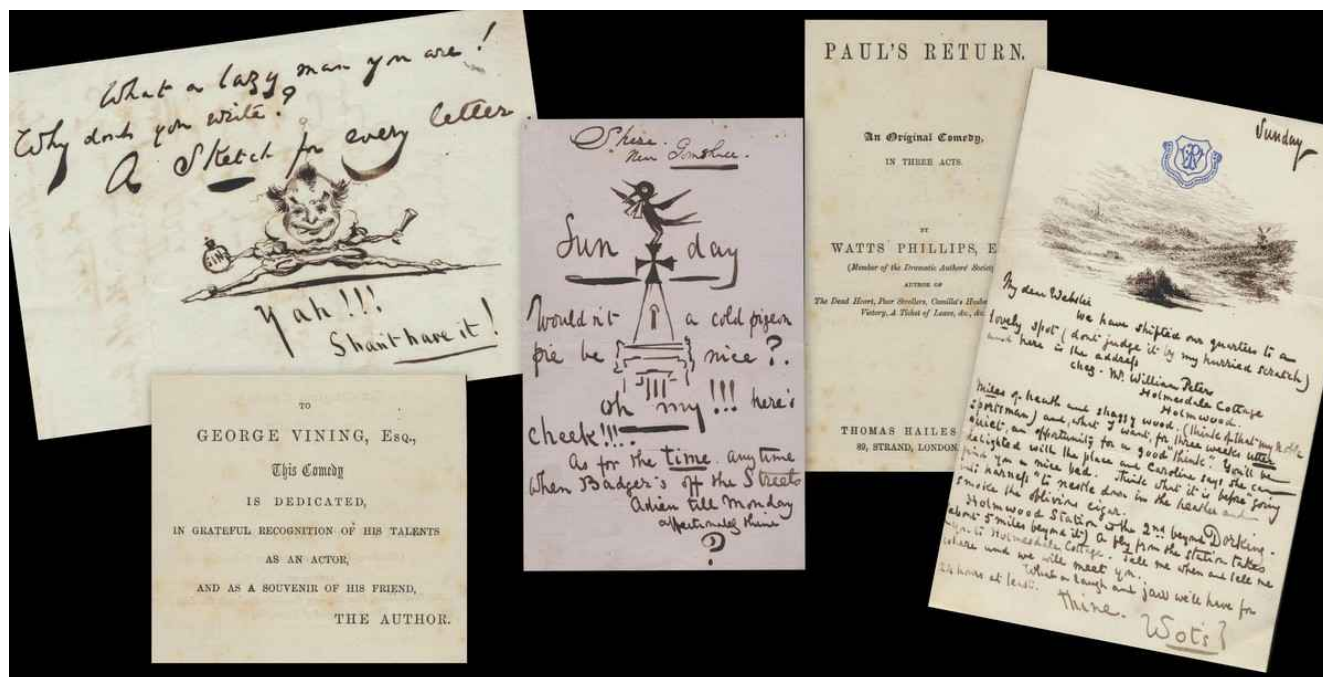 What a lazy man you are!
Why don't you write?
A Sketch for every letter.
GIN
Yah!!!
Shan't have it!
TO
GEORGE VINING, ESQ.,
This Comedy
IS DEDICATED,
IN GRATEFUL RECOGNITION OF HIS TALENTS
AS AN ACTOR,
AND AS A SOUVENIR OF HIS FRIEND,
THE AUTHOR.
Shere.
Near Gomshall.
Sun day
Wouldn't a cold pigeon
pie be nice?.
oh my!!! here's
cheek!!!.
As for the time. any time
when Badger's off the Streets
Adieu till Monday
affectionately thine
?
PAUL'S RETURN.
An Original Comedy,
IN THREE ACTS.
BY
WATTS PHILLIPS, E
(Member of the Dramatic Authors' Society
AUTHOR OF
The Dead Heart, Poor Strollers, Camilla's Husb
Victory, A Ticket of Leave, &c., &c.
THOMAS HAILES
89, STRAND, LONDON
Sunday
My dear Webster
We have shifted our quarters to a
lovely spot (don't judge it by my hurried scratch)
and here is the address
chez - Mr. William Peters
Holmesdale Cottage
Holmwood.
Miles of heath and shaggy wood. (think of that my noble
sportsman) and, what I want, for three weeks utter
quiet, an opportunity for a good "think". You'll be
delighted with the place and Caroline says she can
find you a nice bed. Think what it is before "going
into harness" to nestle down in the heather and
smoke the oblivious cigar.
Holmwood Station is the 2nd beyond Dorking.
about 5 miles beyond it) a fly from the station takes
you to Holmesdale Cottage. Tell me when and tell me
where and we will meet you.
What a laugh and jaw we'll have for
24 hours at least.
Thine.
Wot's?